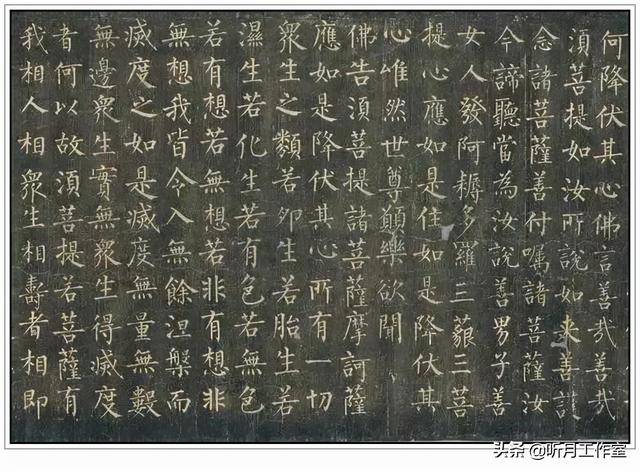 何降伏其心佛言善哉善哉
須菩提如汝所說如来善護
念諸菩薩善付嘱諸菩薩汝
今諦聽當為汝說善男子善
女人發阿耨多羅三藐三菩
提心應如是住如是降伏其
心唯然世尊願樂欲聞
佛告須菩提諸菩薩摩訶薩
應如是降伏其心所有一切
衆生之類若卵生若胎生若
濕生若化生若有色若無色
若有想若無想若非有想非
無想我皆令入無餘涅槃而
滅度之如是滅度無量無數
無邊衆生實無衆生得滅度
者何以故須菩提若菩薩有
我相人相衆生相壽者相即
头条 @听月工作室